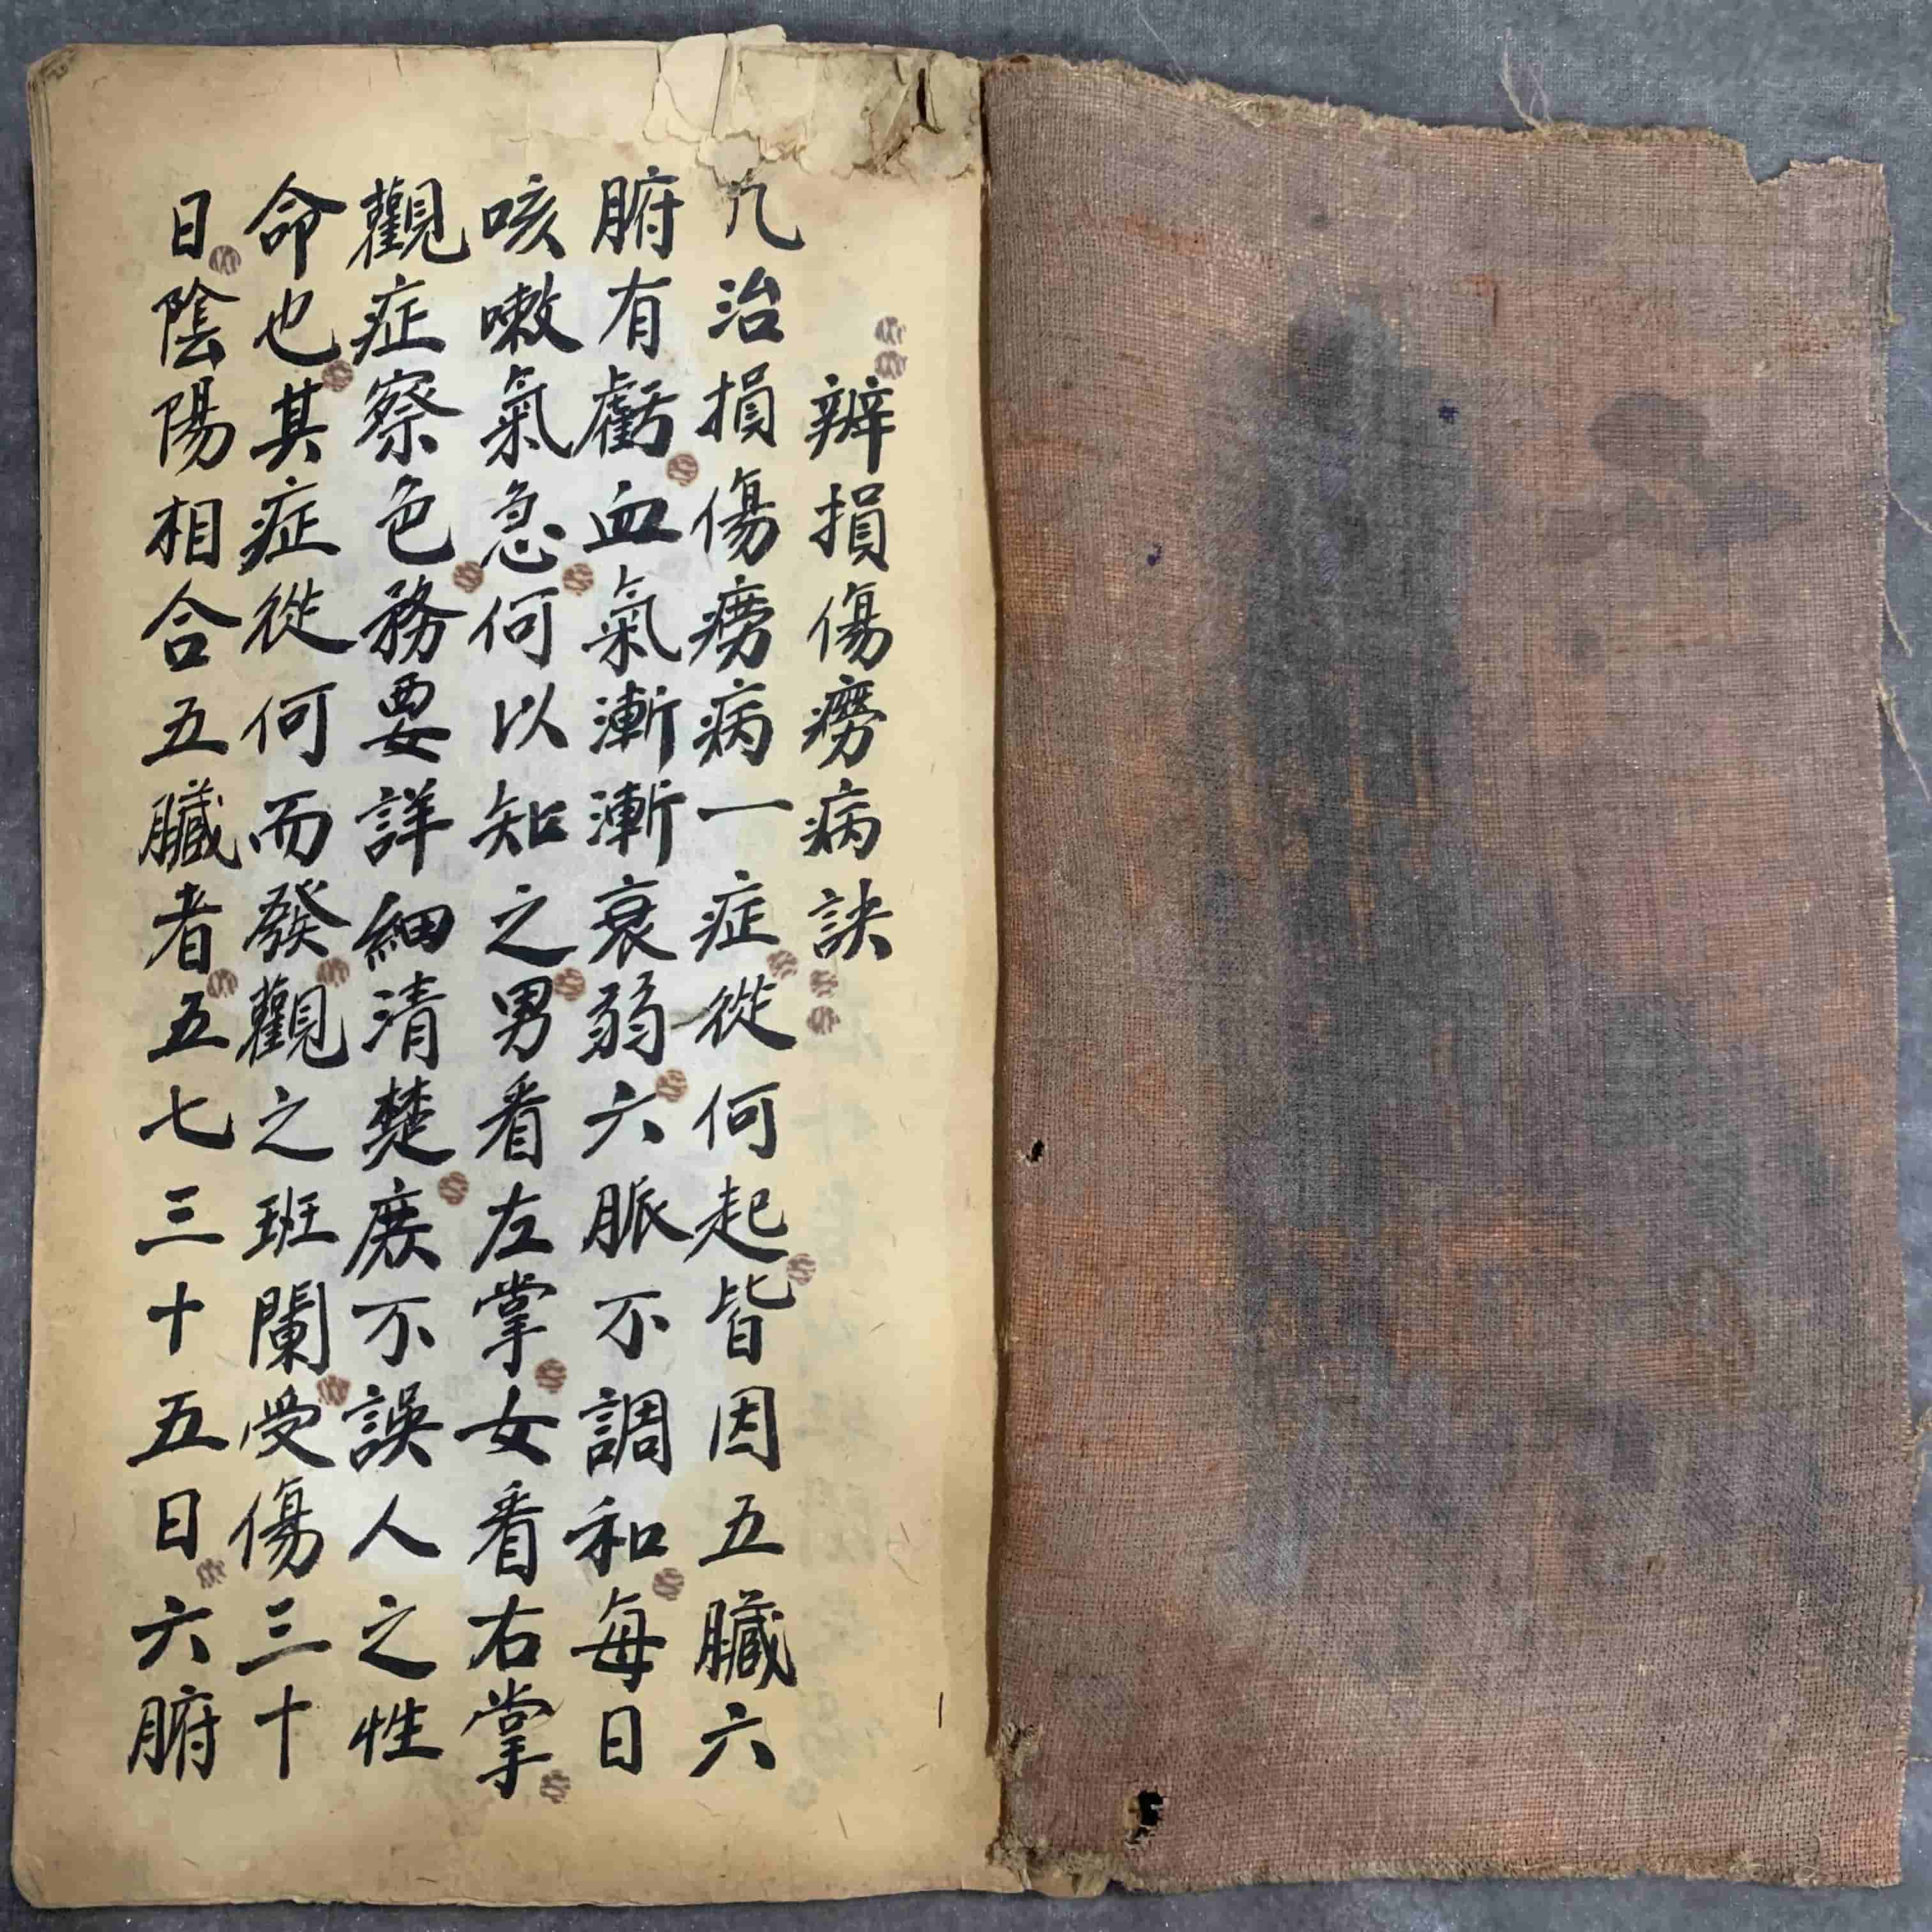 辨損傷癆病訣
凡治損傷癆病一症從何起皆因五臟六
腑有虧血氣漸漸衰弱六脈不調和每日
咳嗽氣急何以知之男看左掌女看右掌
觀症察色務要詳細清楚庶不誤人之性
命也其症從何而發觀之班闌受傷三十
日陰陽相合五臟者五七三十五日六腑